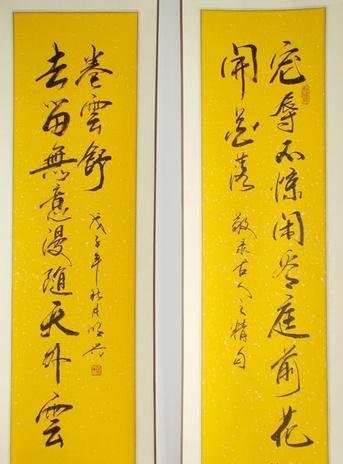 宠辱不惊閑看庭前花
開花落
敬录古人之句
去留無意漫随天外雲
卷雲舒
戊子年月